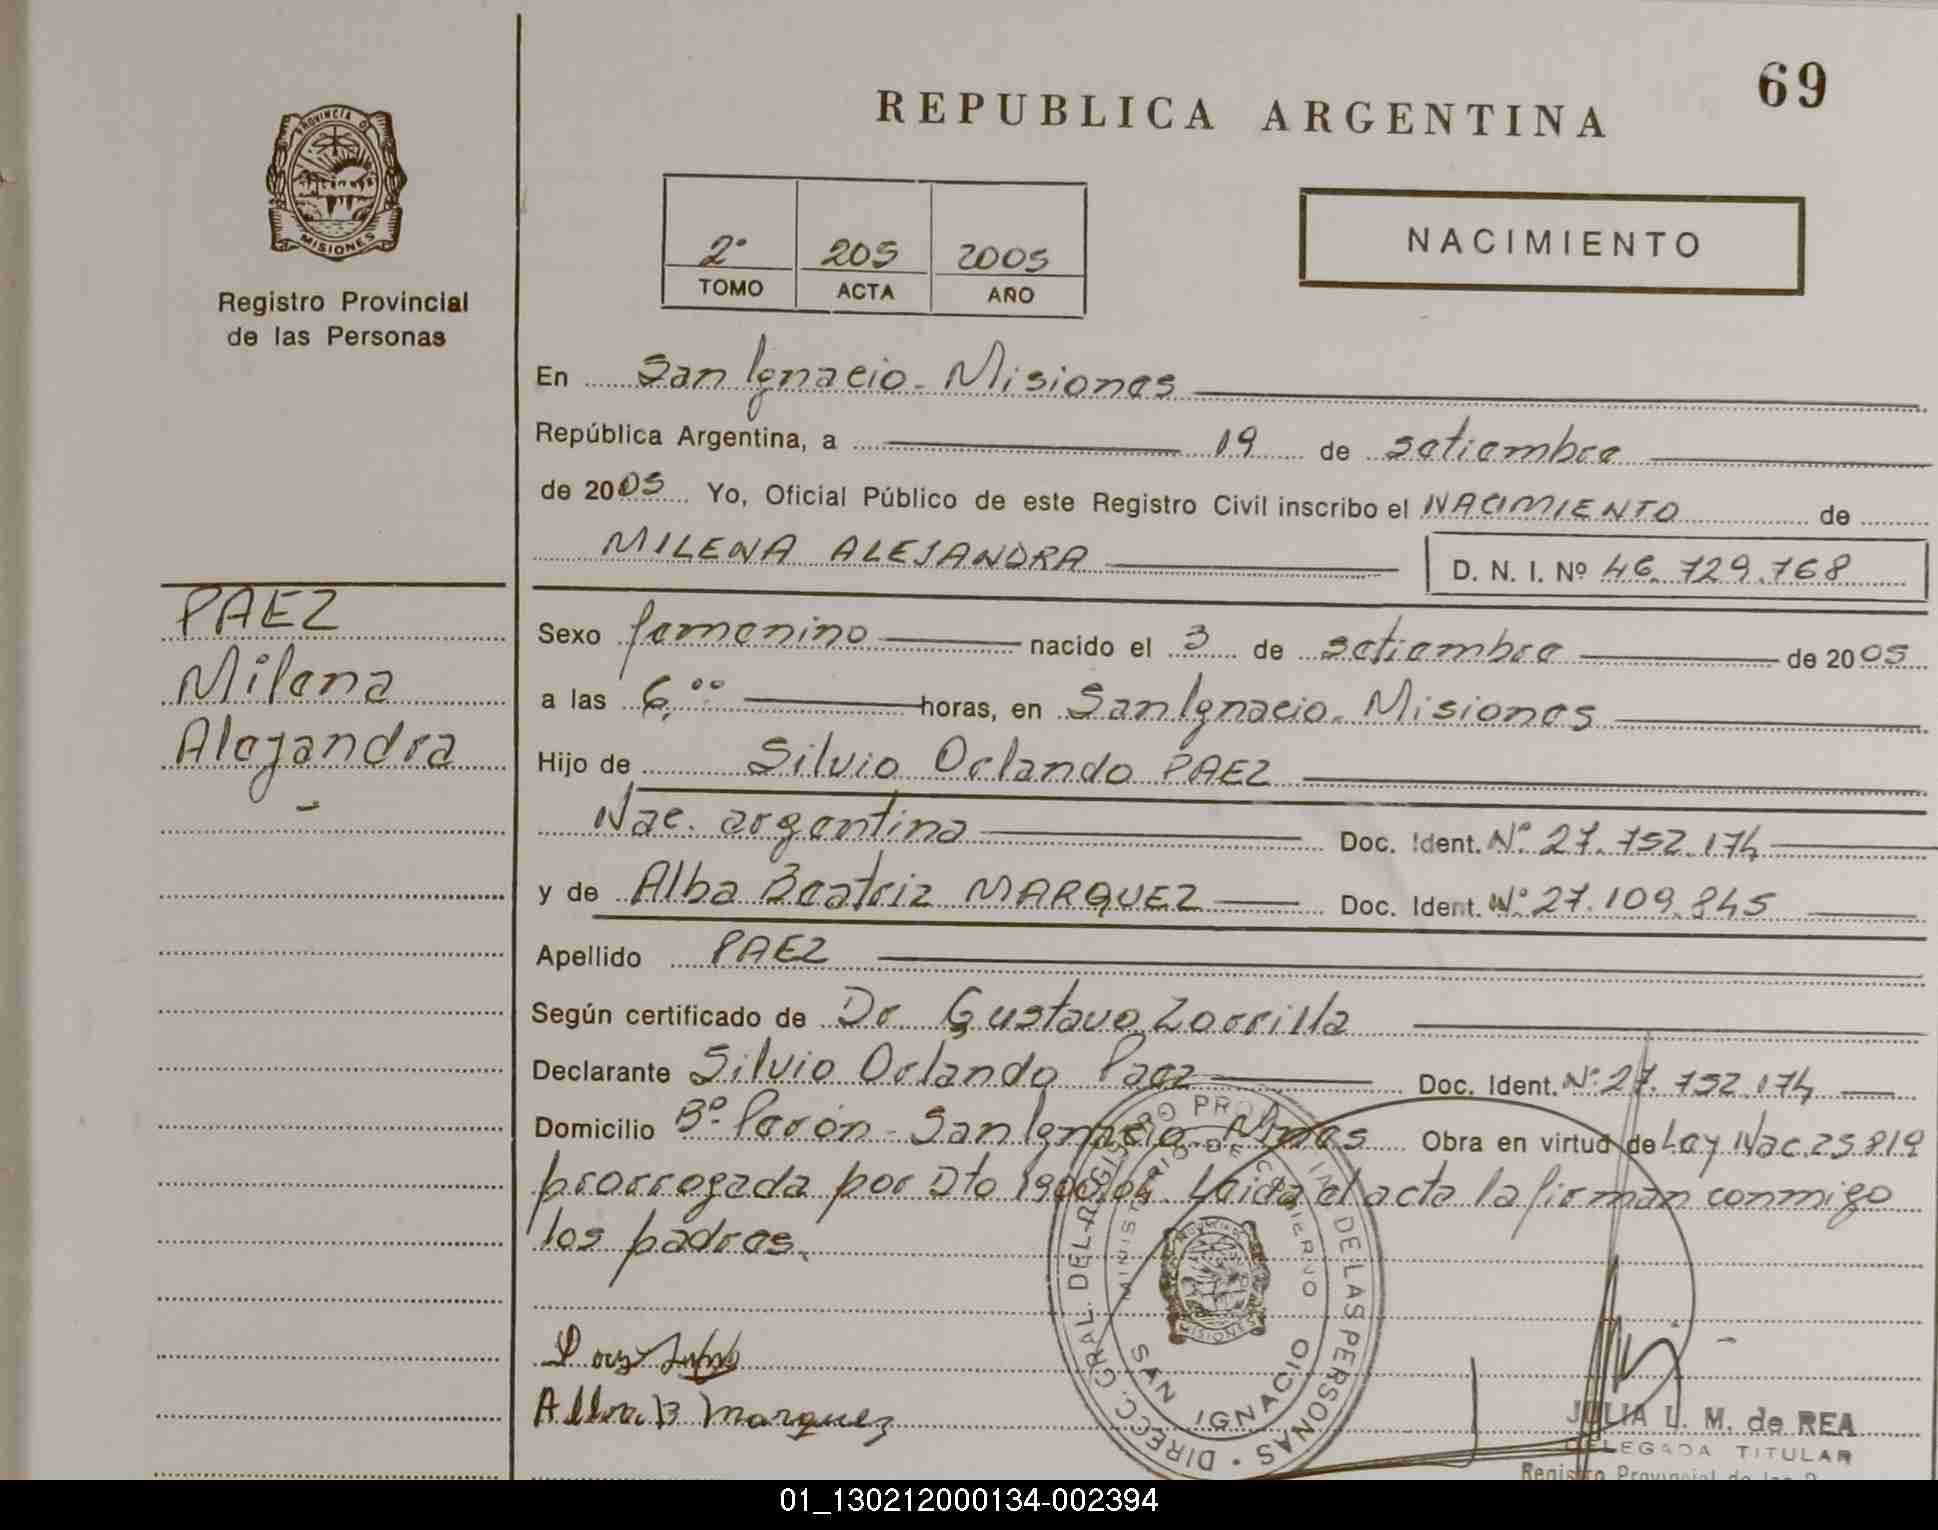 69
REPUBLICA ARGENTINA
PROVINCIA DE
MISIONES
Registro Provincial
de las Personas
2º 205 2005
TOMO ACTA AÑO
NACIMIENTO
En San Ignacio - Misiones
República Argentina, a 19 de setiembre
de 2005 Yo, Oficial Público de este Registro Civil inscribo el NACIMIENTO de
MILENA ALEJANDRA D. N. I. Nº 46.729.768
PAEZ
Milena
Alejandra
Sexo femenino nacido el 3 de setiembre de 2005
a las 6,00 horas, en San Ignacio - Misiones
Hijo de Silvio Orlando PAEZ
Nac. argentina Doc. Ident. Nº 27.752.174
y de Alba Beatriz MARQUEZ Doc. Ident. Nº 27.109.845
Apellido PAEZ
Según certificado de Dr Gustavo Zorrilla
Declarante Silvio Orlando Paez Doc. Ident. Nº 27.752.174
Domicilio Bº Perón - San Ignacio - Mnes Obra en virtud de Ley Nac. 25819
prorrogada por Dto 1900/04. Leida el acta la firman conmigo
los padres.
DIRECC. GRAL. DEL REGISTRO PROVINCIAL DE LAS PERSONAS
MINISTERIO DE GOBIERNO
MISIONES
SAN IGNACIO
Paez Silvio
Alba B Marquez
JULIA L. M. de REA
DELEGADA TITULAR
Registro Provincial de las
01_130212000134-002394